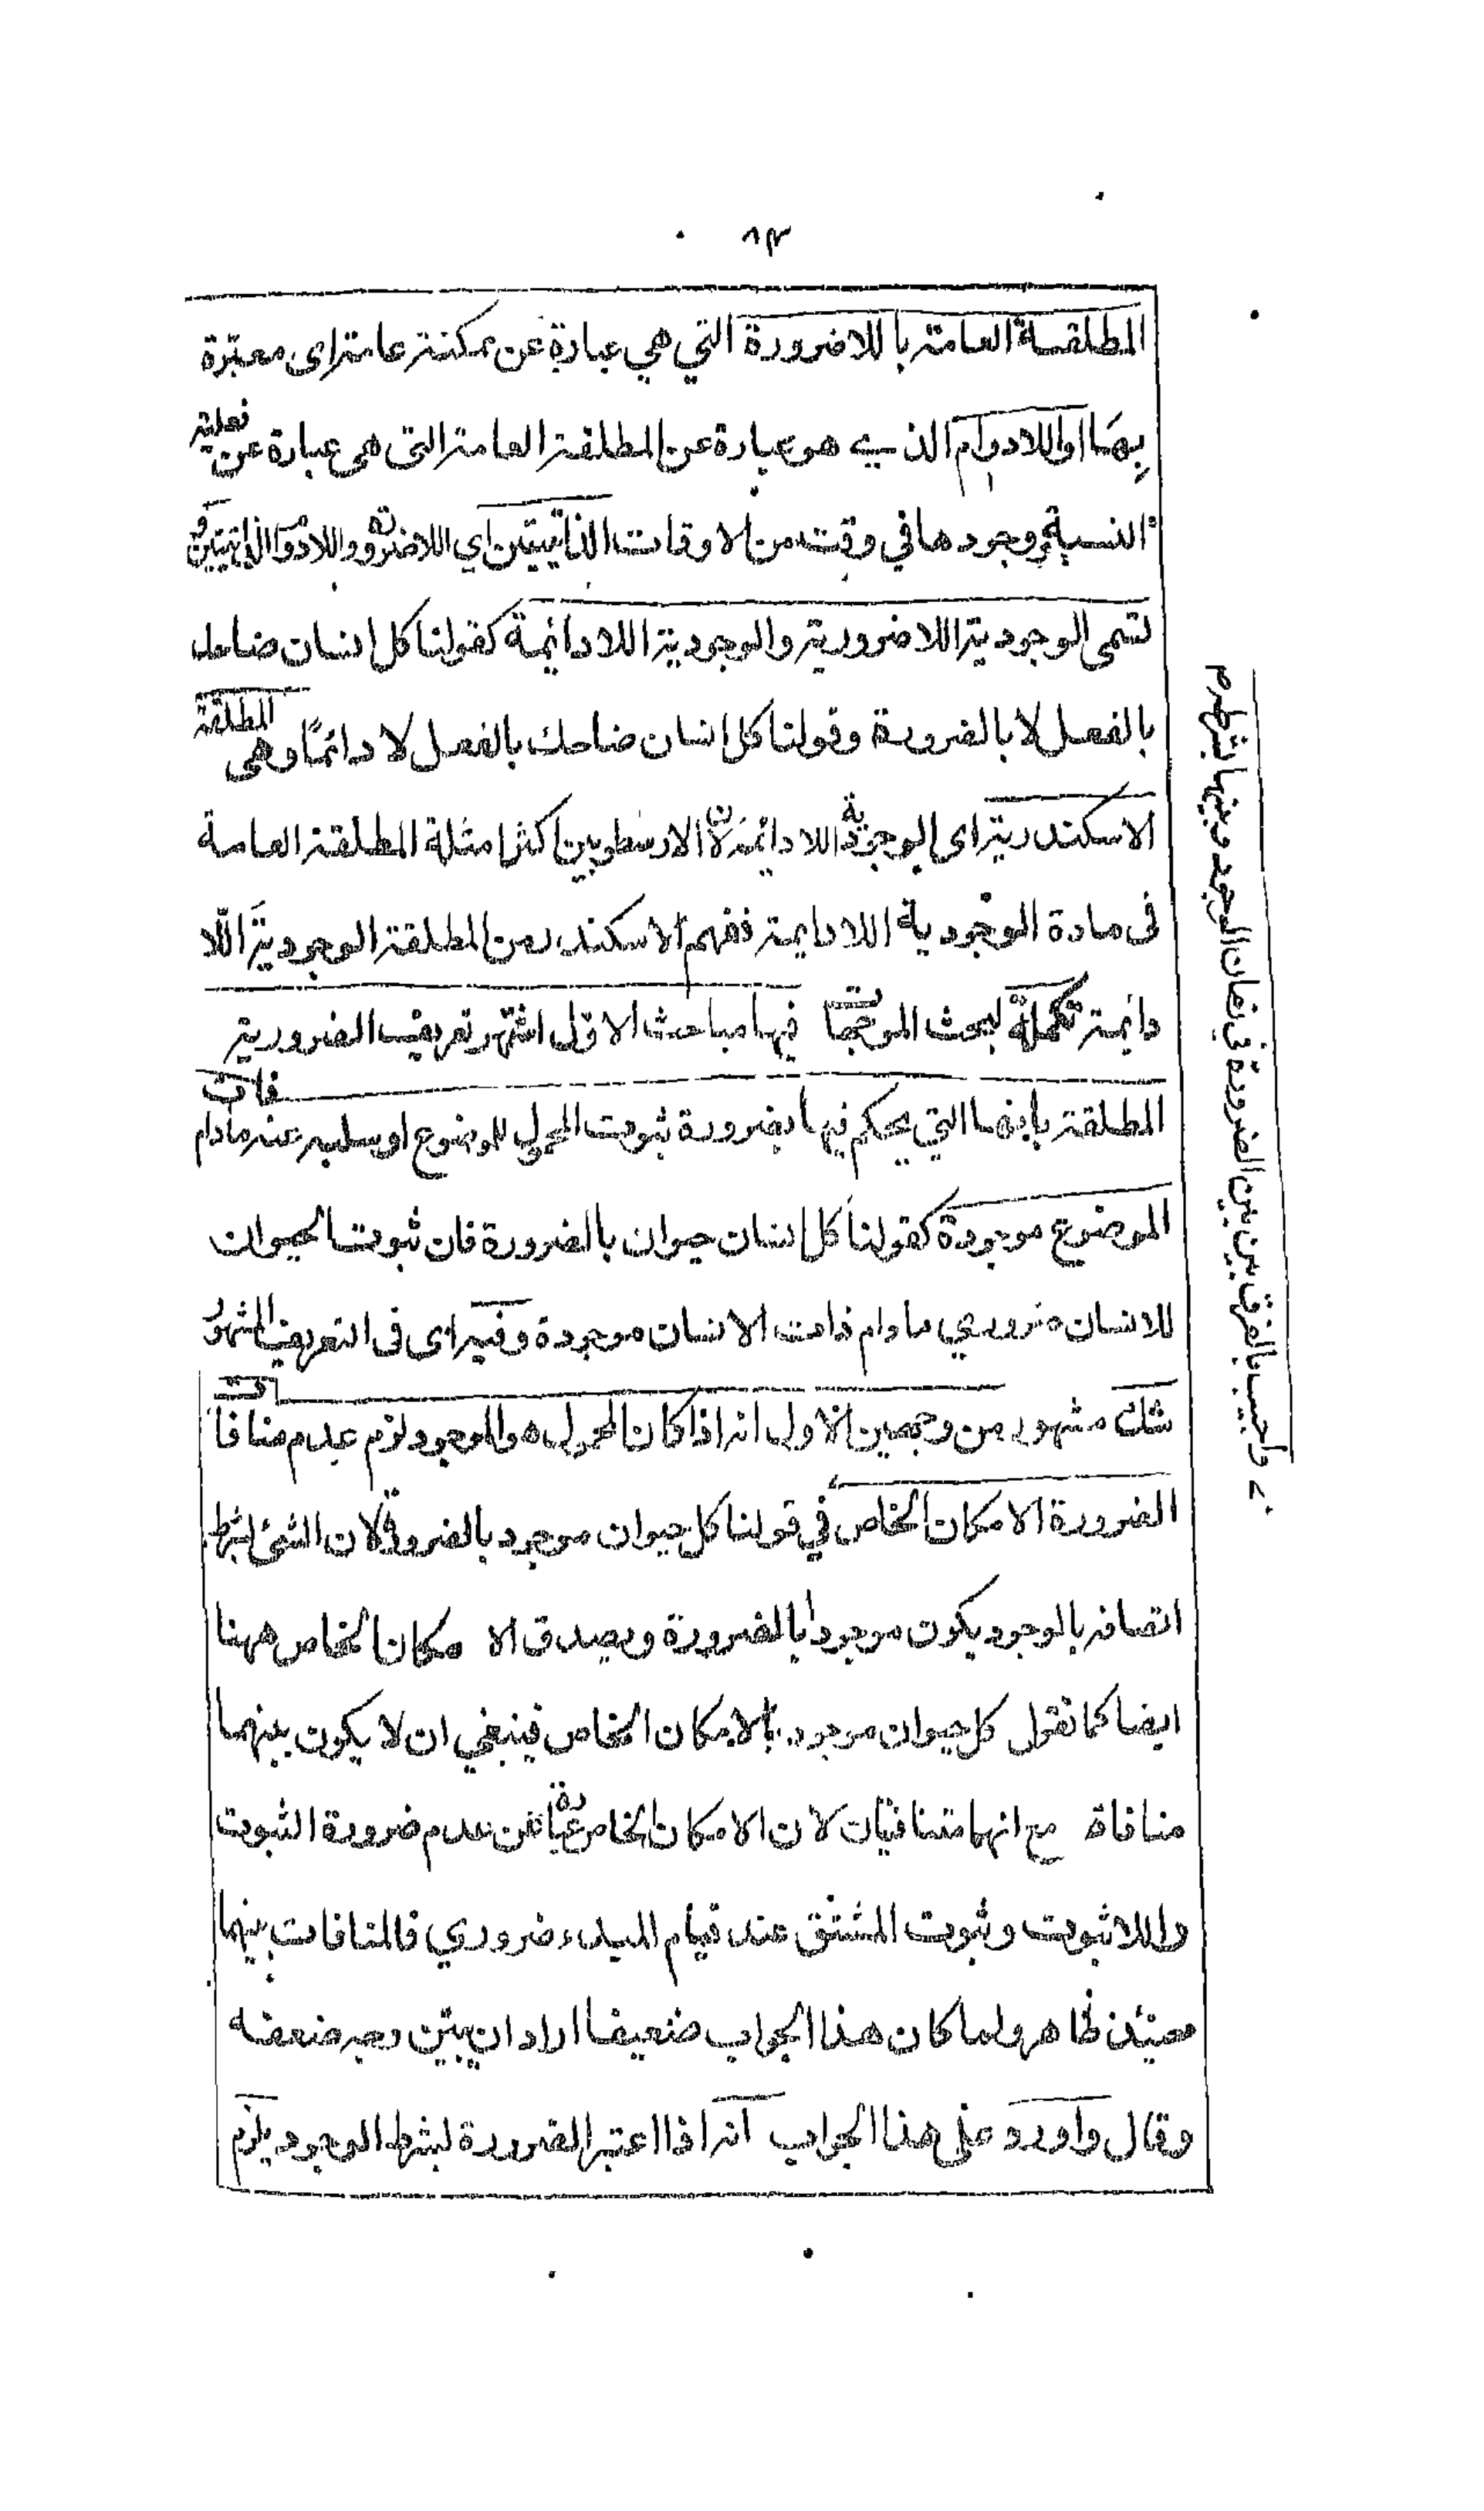 ٨٣
المطلقة العامة باللاضرورة التي هي عبارة عن ممكنة عامة اى معتبرة
بها او اللادوام الذي هو عبارة عن المطلقة العامة التى هى عبارة عن فعلية
النسبة ووجودها في وقت من الاوقات الذاتيتين اي اللاضرورة واللادوام الذاتيتين و
تسمى الوجودية اللاضرورية والوجودية اللادائمة كقولنا كل انسان ضاحك
بالفعل لا بالضرورة وقولنا كل انسان ضاحك بالفعل لا دائمًا وهى المطلقة
الاسكندرية اى الوجودية اللادائمة لان الارسطويين اكثر امثلة المطلقة العامة
فى مادة الوجودية اللادايمة ففهم الاسكندر من المطلقة الوجودية اللا
دائمة تكملة لبحث الموجهات فيها مباحث الاوّل اشتهر تعريف الضرورية
المطلقة بأنها التي يحكم فيها بضرورة ثبوت المحمول للموضوع او سلبه عنه مادام ذات
الموضوع موجودة كقولنا كل انسان حيوان بالضرورة فان ثبوت الحيوان
للانسان ضروري مادام ذات الانسان موجودة وفيه اى فى التعريف المشهور
شك مشهور من وجهين الاول انه اذا كان المحمول هو الموجود لزم عدم منافات
الضرورة الامكان الخاص في قولنا كل حيوان موجود بالضرورة لان الشئ بشرط
اتصافه بالوجود يكون موجودا بالضرورة ويصدق الامكان الخاص ههنا
ايضا كما تقول كل حيوان موجود بالامكان الخاص فينبغي ان لا يكون بينهما
منافاة مع انهما متنافيان لان الامكان الخاص عبارة عن عدم ضرورة الثبوت
واللاثبوت وثبوت المشتق عند قيام المبدء ضروري فالمنافات بينهما
حينئذ ظاهر ولما كان هذا الجواب ضعيفا اراد ان يبيّن وجه ضعفه
وقال واورد على هذا الجواب انه اذا اعتبر الضرورة بشرط الوجود يلزم
واجيب بالفرق بين بين الضرورة في زمان الوجود وبينها بشرطه م